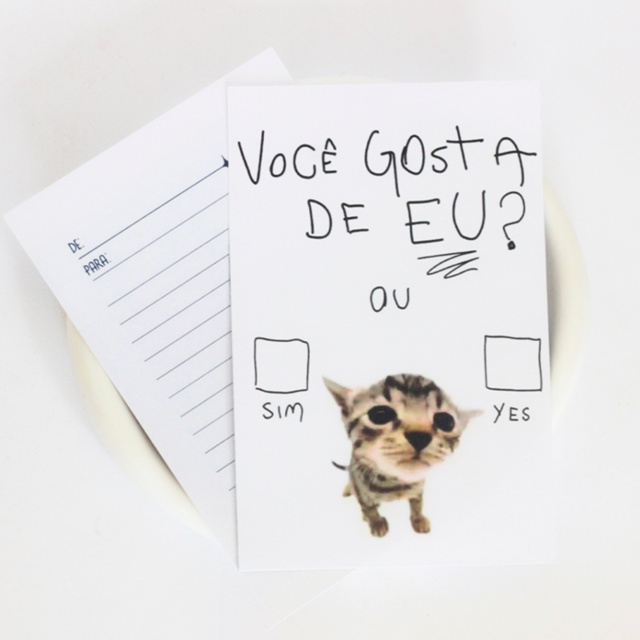 VOCÊ GOSTA
DE EU?
OU
SIM
YES
DE:
PARA: